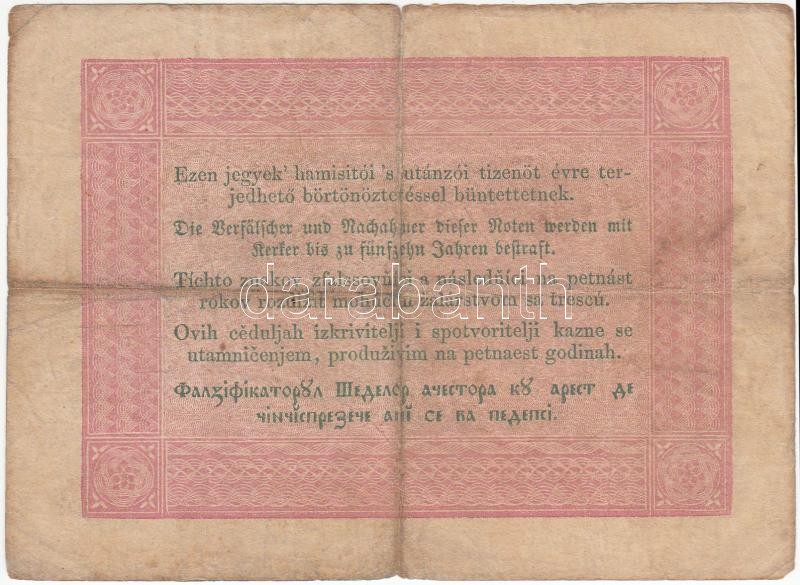 Ezen jegyek' hamisitói 's utánzói tizenöt évre ter-
jedhető börtönöztetéssel büntettetnek.
Die Verfälscher und Nachahmer dieser Noten werden mit
Kerker bis zu fünfzehn Jahren bestraft.
Tíchto znakov a následňíci na petnást
rokov žalárstvom sa trescú.
darabanth
Ovih cĕduljah izkrivitelji i spotvoritelji kazne se
utamničenjem, produživim na petnaest godinah.
Фалꙁіфікаторꙋл Шеделор ачестора кꙋ арест де
чінчіспрезече анї се ва педепсі.